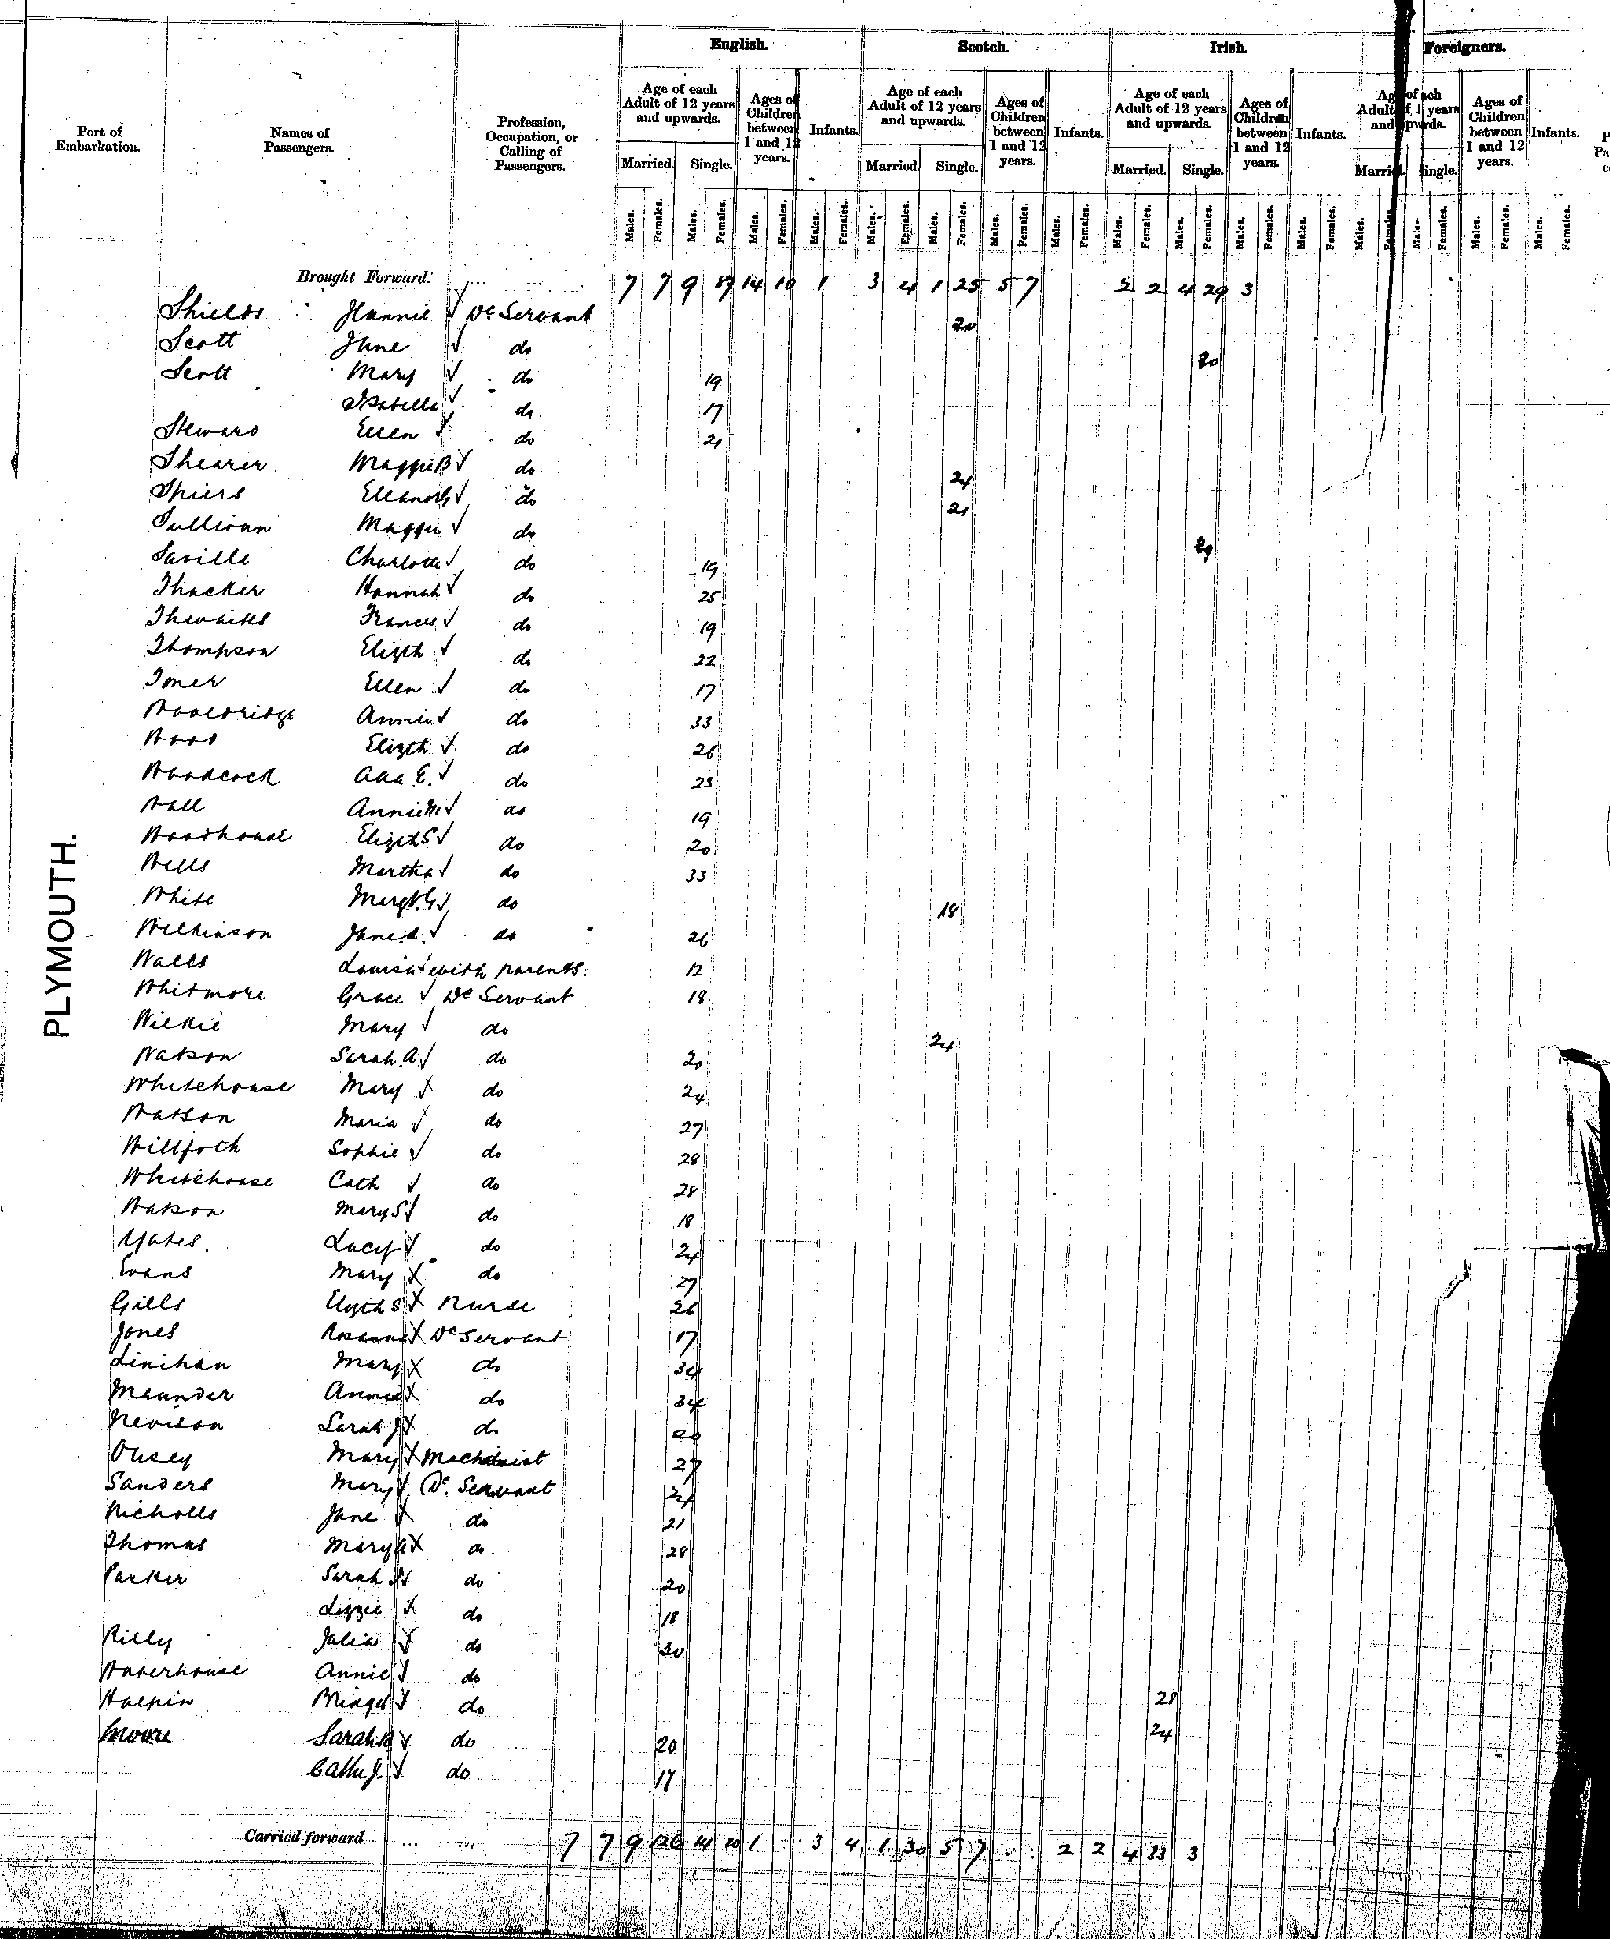 English. Scotch. Irish. Foreigners.
Port of Embarkation. Names of Passengers. Profession, Occupation, or Calling of Passengers. Age of each Adult of 12 years and upwards. Ages of Children between 1 and 12 years. Infants. Age of each Adult of 12 years and upwards. Ages of Children between 1 and 12 years. Infants. Age of each Adult of 12 years and upwards. Ages of Children between 1 and 12 years. Infants. Age of each Adult of 12 years and upwards. Ages of Children between 1 and 12 years. Infants.
Married. Single. Married. Single. Married. Single. Married. Single.
Males. Females. Males. Females. Males. Females. Males. Females. Males. Females. Males. Females. Males. Females. Males. Females. Males. Females. Males. Females. Males. Females. Males. Females. Males. Females. Males. Females. Males. Females. Males. Females.
PLYMOUTH.
Brought Forward. 7 7 9 14 10 1 3 4 1 25 5 7 2 2 4 29 3
Shields Jeannie Dc Servant 20
Scott Jane do 20
Scott Mary do 19
Isabella do 17
Steward Ellen do 21
Shearer Maggie B do 24
Spiers Eleanor G do 21
Sullivan Maggie do
Saville Charlotte do 19
Thacker Hannah do 25
Thwaites Frances do 19
Thompson Elizth do 22
Toner Ellen do 17
Wooldridge Annie do 33
Wood Elizth do 26
Woodcock Ada E. do 23
Wall Annie M do 19
Woodhouse Elizth S do 20
Wells Martha do 33
White Margt G do 18
Wilkinson Jane A. do 26
Walls Louisa with parents. 12
Whitmore Grace Dc Servant 18
Wilkie Mary do 24
Watson Sarah A. do 20
Whitehouse Mary do 24
Watson Maria do 27
Willfoth Sophie do 28
Whitehouse Cath do 28
Watson Mary S do 18
Yates. Lucy do 24
Evans Mary do 27
Gills Elizth S Nurse 26
Jones Rosanna Dc Servant 17
Linihan Mary do 34
Maunder Annie do 34
Nevison Sarah J do 20
Olisey Mary Machinist 27
Sanders Mary Dc. Servant 24
Nicholls Jane do 21
Thomas Mary A do 28
Parker Sarah do 20
Lizzie do 18
Rilly Julia do 30
Waterhouse Annie do
Halpin Bridget do 28
Moore Sarah do 20 24
Cathe J. do 17
Carried forward 7 7 9 126 14 10 1 3 4 1 30 5 7 2 2 4 33 3